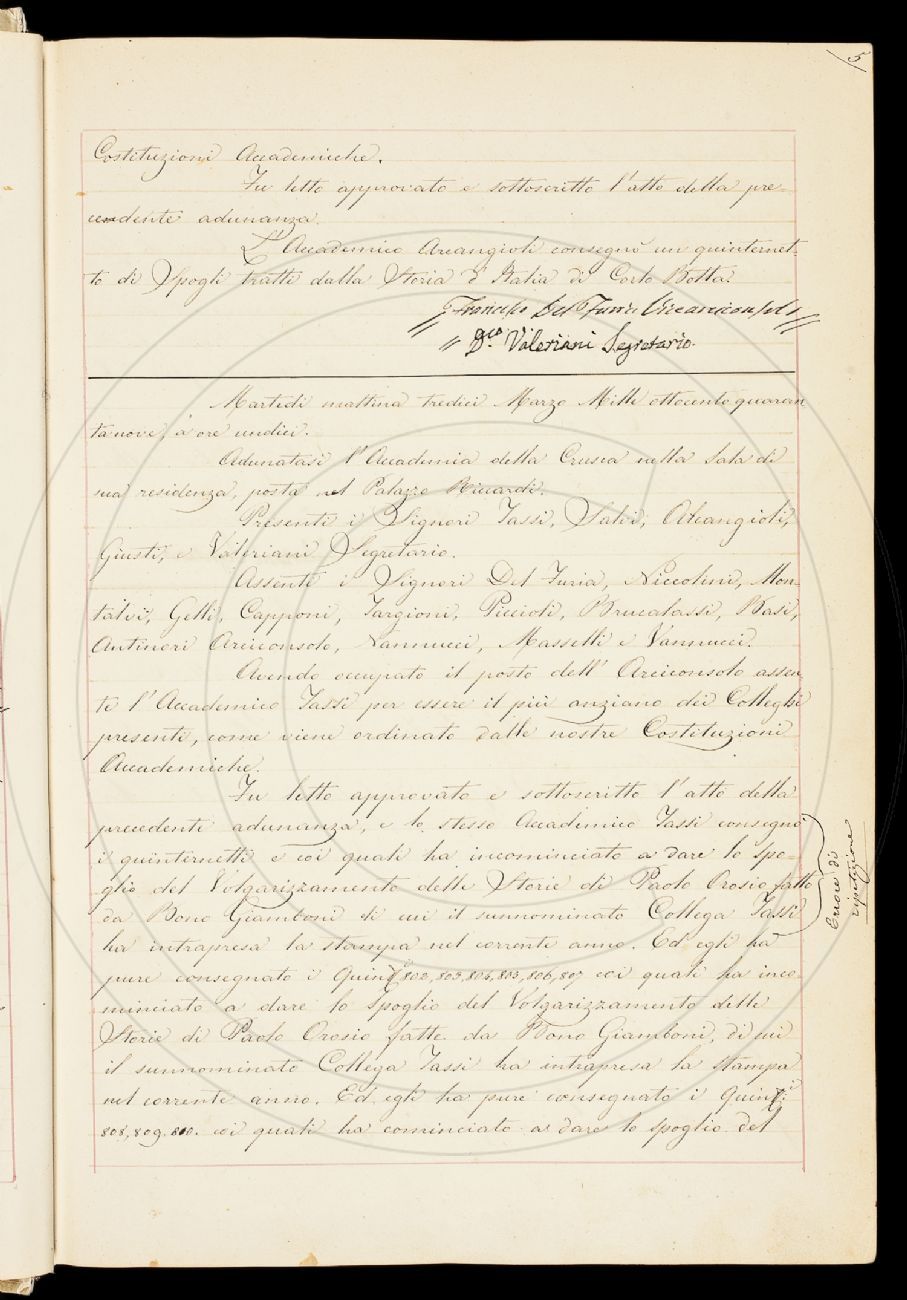 5
Costituzioni Accademiche.
Fu letto approvato e sottoscritto l'atto della pre-
cendente adunanza.
L'Accademico Arcangioli consegnò un quinternet-
to di Spogli tratti dalla Storia d'Italia di Carlo Botta.
Francesco Del Furia Vicearciconsolo
D.co Valeriani Segretario.
Martedi mattina tredici Marzo Mille ottocento quaran
tanove, a ore undici.
Adunatasi l'Accademia della Crusca nella Sala di
sua residenza, posta nel Palazzo Riccardi.
Presenti i Signori Tassi, Salvi, Arcangioli,
Giusti, e Valeriani Segretario.
Assenti i Signori Del Furia, Niccolini, Mon-
talvi, Gelli, Capponi, Targioni, Piccioli, Brucalassi, Basi,
Antinori Arciconsolo, Nannucci, Masselli e Vannucci.
Avendo occupato il posto dell'Arciconsolo assen
te l'Accademico Tassi per essere il più anziano dei Colleghi
presenti, come viene ordinato dalle nostre Costituzioni
Accademiche.
Fu letto approvato e sottoscritto l'atto della
precedente adunanza, e lo stesso Accademico Tassi consegnò
i quinternetti e coi quali ha incominciato a dare lo spo-
glio del Volgarizzamento delle Storie di Paolo Orosio fatto
da Bono Giamboni di cui il sunnominato Collega Tassi
ha intrapresa la stampa nel corrente anno. Ed egli ha
pure consegnato i Quint.i 802, 803, 804, 805, 806, 807 coi quali ha inco-
minciato a dare lo Spoglio del Volgarizzamento delle
Storie di Paolo Orosio fatte da Bono Giamboni, di cui
il sunnominato Collega Tassi ha intrapresa la stampa
nel corrente anno. Ed egli ha pure consegnato i Quint.i
808, 809, 810. coi quali ha cominciato a dare lo spoglio del
Errore di
ripetizione